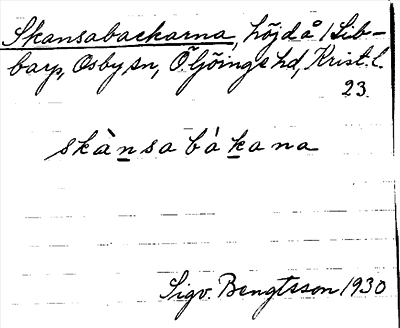 Skansabackarna, höjd å Sib-
barp, Osby sn, Ö Göinge hd, Krist. l.
23.
skànsabákana
Sigv. Bengtsson 1930